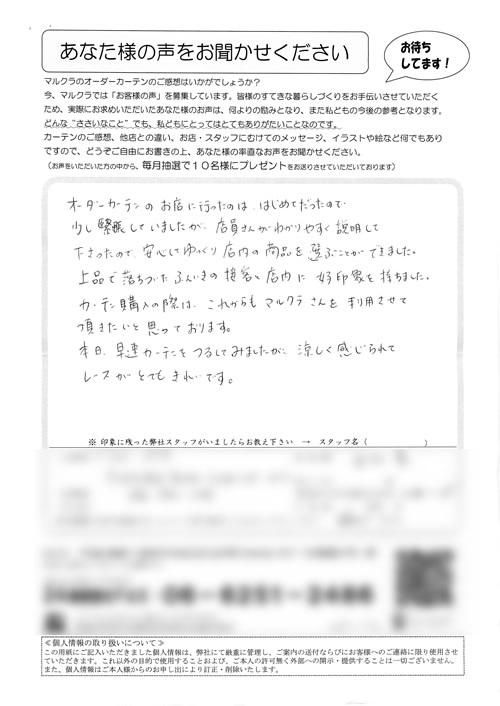 あなた様の声をお聞かせください
お待ち
してます！
マルクラのオーダーカーテンのご感想はいかがでしょうか？
今、マルクラでは「お客様の声」を募集しています。皆様のすてきな暮らしづくりをお手伝いさせていただく
ため、実際にお求めいただいたあなた様のお声は、何よりの励みとなり、また私どもの今後の参考となります。
どんな“ささいなこと”でも、私どもにとってはとてもありがたいことなのです。
カーテンのご感想、他店との違い、お店・スタッフにむけてのメッセージ、イラストや絵など何でもあり
ですので、どうぞご自由にお書きの上、あなた様の率直なお声をお聞かせください。
（お声をいただいた方の中から、毎月抽選で１０名様にプレゼントをお送りさせていただいております）
オーダーカーテンのお店に行ったのは、はじめてだったので
少し緊張していましたが、店員さんがわかりやすく説明して
下さったので、安心してゆっくり店内の商品を選ぶことができました。
上品で落ちついたふんいきの接客と店内に好印象を持ちました。
カーテン購入の際は、これからもマルクラさんを利用させて
頂きたいと思っております。
本日、早速カーテンをつるしてみましたが、涼しく感じられて
レースがとてもきれいです。
※ 印象に残った弊社スタッフがいましたらお教え下さい → スタッフ名（　　　　　　）
≪個人情報の取り扱いについて≫
この用紙にご記入いただきました個人情報は、弊社にて厳重に管理し、ご案内の送付ならびにお客様へのご連絡に限り使用させ
ていただきます。これ以外の目的で使用することおよび、ご本人の許可無く外部への開示・提供することは一切ございません。
また、個人情報はご本人様からのお申し出により訂正・削除いたします。